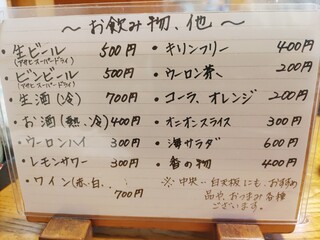 ～お飲み物、他～
・生ビール 500円
(アサヒスーパードライ)
・ビンビール 500円
(アサヒスーパードライ)
・生酒(冷) 700円
・お酒(熱、冷)400円
・ウーロンハイ 300円
・レモンサワー 300円
・ワイン(赤、白、、
700円
・キリンフリー 400円
・ウーロン茶、 200円
・コーラ、オレンジ 200円
・オニオンスライス 300円
・海サラダ 600円
・香の物 400円
※中央 白文板にも、おすすめ
品や、おつまみ各種
ございます。